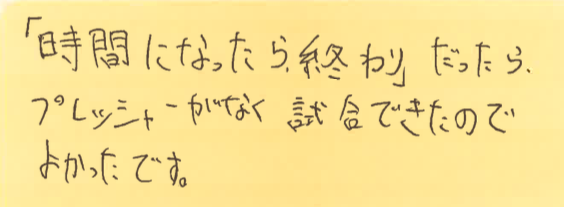 「時間になったら、終わり」だったら、
プレッシャーがなく試合できたので
よかったです。